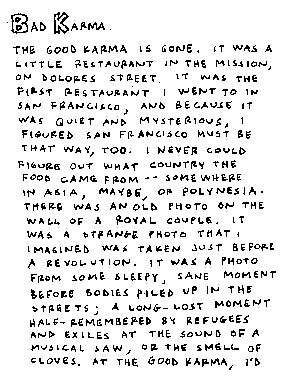 BAD KARMA.
THE GOOD KARMA IS GONE. IT WAS A
LITTLE RESTAURANT IN THE MISSION,
ON DOLORES STREET. IT WAS THE
FIRST RESTAURANT I WENT TO IN
SAN FRANCISCO, AND BECAUSE IT
WAS QUIET AND MYSTERIOUS, I
FIGURED SAN FRANCISCO MUST BE
THAT WAY, TOO. I NEVER COULD
FIGURE OUT WHAT COUNTRY THE
FOOD CAME FROM -- SOMEWHERE
IN ASIA, MAYBE, OR POLYNESIA.
THERE WAS AN OLD PHOTO ON THE
WALL OF A ROYAL COUPLE. IT
WAS A STRANGE PHOTO THAT I
IMAGINED WAS TAKEN JUST BEFORE
A REVOLUTION. IT WAS A PHOTO
FROM SOME SLEEPY, SANE MOMENT
BEFORE BODIES PILED UP IN THE
STREETS; A LONG-LOST MOMENT
HALF-REMEMBERED BY REFUGEES
AND EXILES AT THE SOUND OF A
MUSICAL SAW, OR THE SMELL OF
CLOVES. AT THE GOOD KARMA, I'D